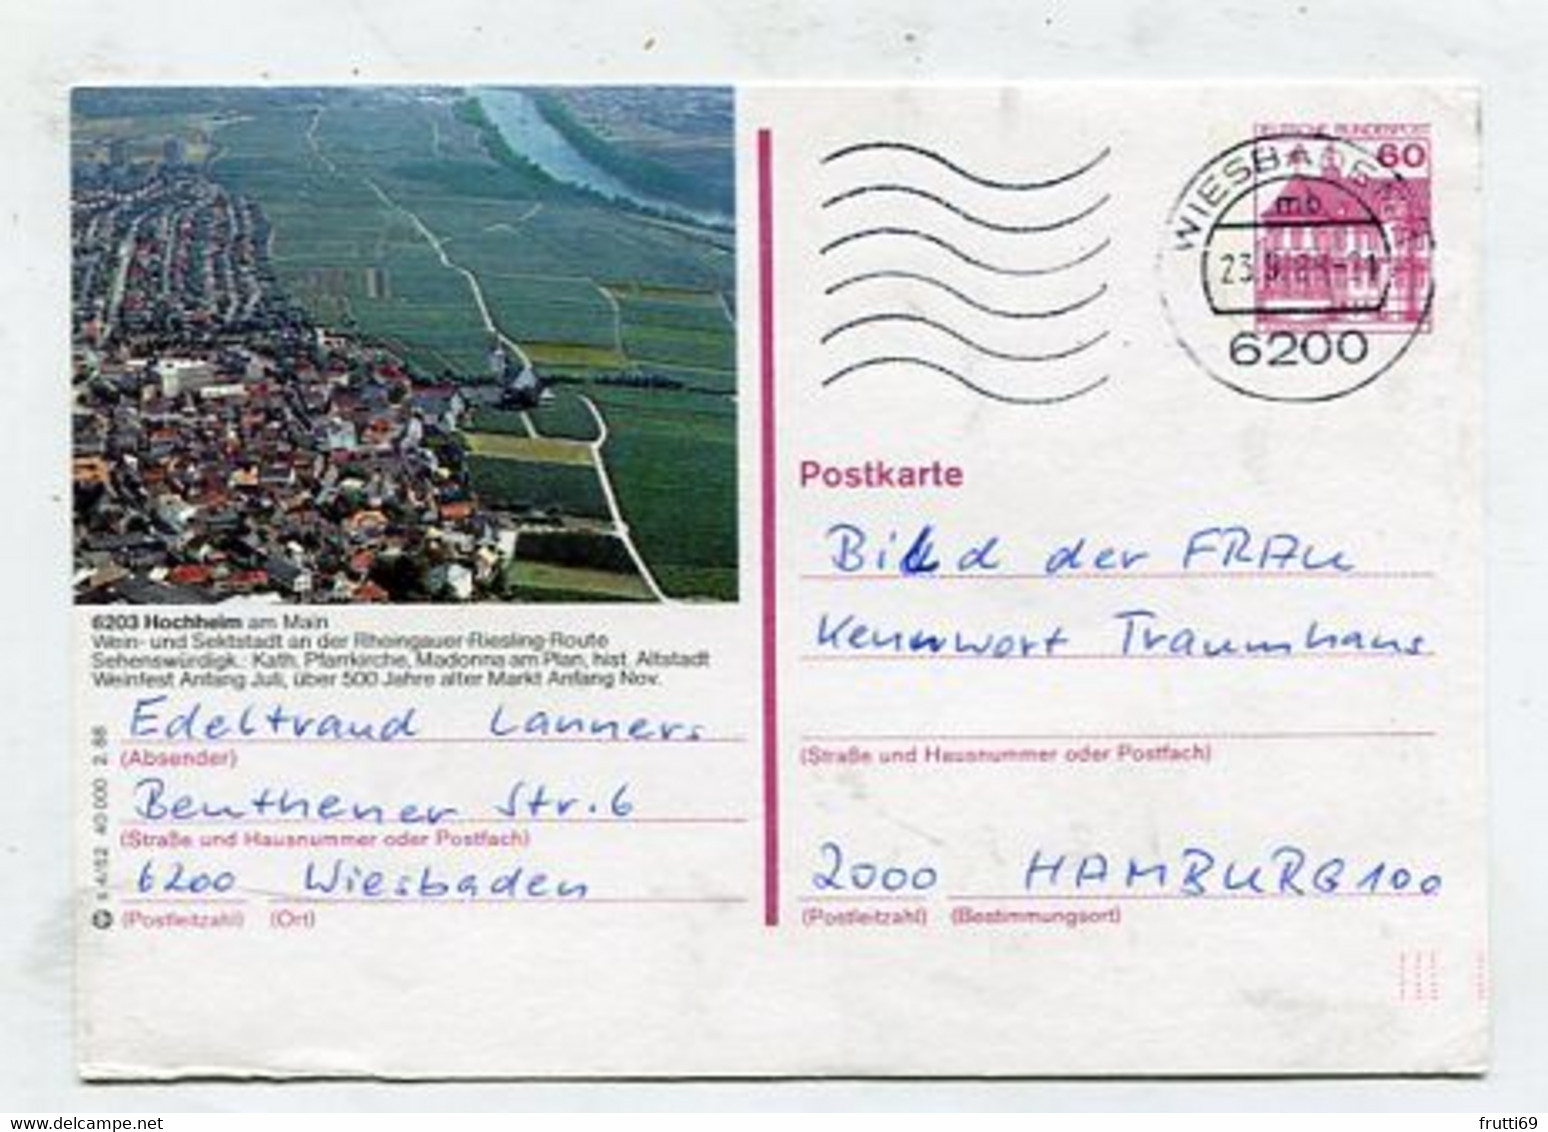 DEUTSCHE BUNDESPOST
60
WIESBADEN
mb
6200
Postkarte
Bild der FRAU
Kennwort Traumhaus
(Straße und Hausnummer oder Postfach)
2000 HAMBURG 100
(Postleitzahl) (Bestimmungsort)
6203 Hochheim am Main
Wein- und Sektstadt an der Rheingauer-Riesling-Route
Sehenswürdigk.: Kath. Pfarrkirche, Madonna am Plan, hist. Altstadt
Weinfest Anfang Juli, über 500 Jahre alter Markt Anfang Nov.
Edeltraud Lanners
(Absender)
Beuthener Str. 6
(Straße und Hausnummer oder Postfach)
6200 Wiesbaden
(Postleitzahl) (Ort)
s 4/52 40 000 2.88
frutti69